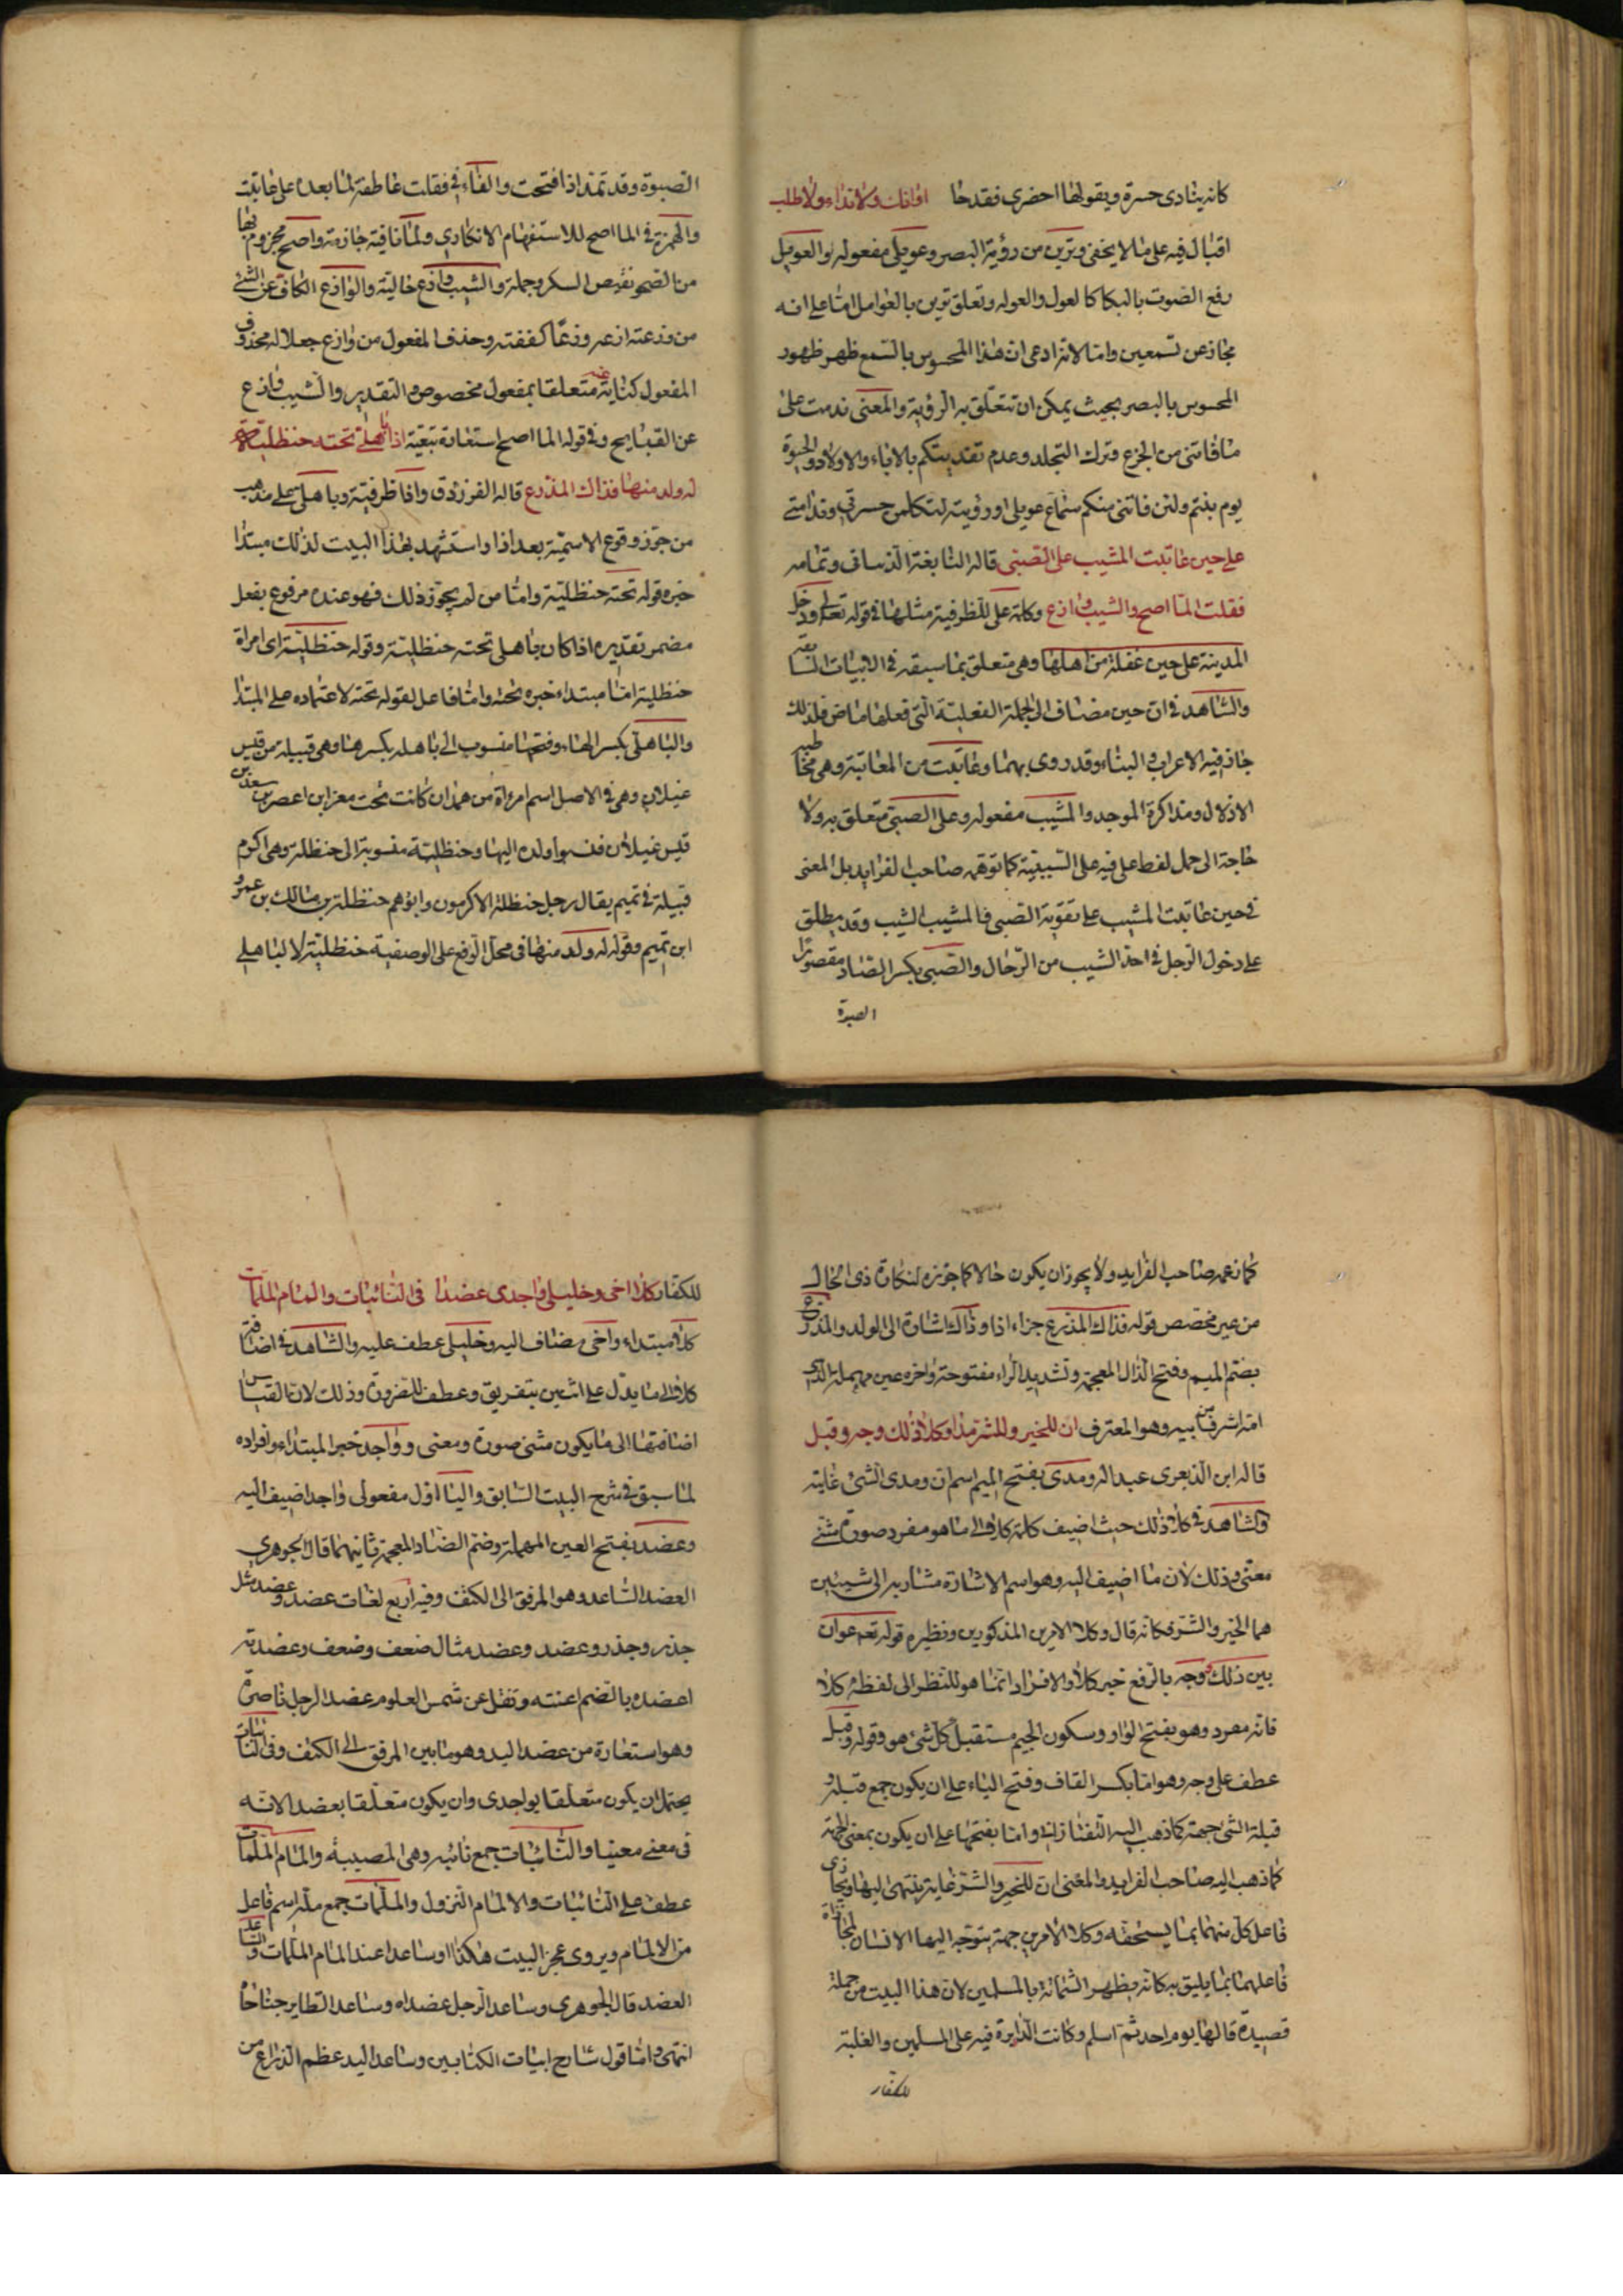 كانه ينادى حسرة ويقول لها احضرى فقد حا اوانك ولا نداء ولا طلب
اقبال فيه على ما لا يخفى وترين من رؤية البصر وعويلى مفعوله والعويل
رفع الصوت بالبكا كالعول والعوله وتعلق ترين بالعوامل اما على انه
مجاز عن تسمعين واما لانه ادعى ان هذا المحسوس بالسمع ظهر ظهور
المحسوس بالبصر بحيث يمكن ان تتعلق به الرؤية والمعنى ندمت على
ما فاتنى من الجزع وترك التجلد وعدم تفديتكم بالاباء والاولاد والحيوة
يوم بنتم ولئن فاتنى منكم سماع عويلى او رؤيته لتكلمن حسرتى وندامتى
على حين عاتبت المشيب على الصبى قاله النابغة الذبيانى وتمامه
فقلت الما اصح والشيب وازع وكلمة على للظرفية مثلها فى قوله تعالى ودخل
المدينة على حين غفلة من اهلها وهى متعلق بما سبقه فى الابيات السابقه
والشاهد فى ان حين مضاف الى الجملة الفعلية التى فعلها ماض فلذلك
جاز فيه الاعراب والبناء وقد روى بهما وعاتبت من المعاتبة وهى مخاطبه
الاذلال ومذاكرة الموجد والمشيب مفعوله وعلى الصبى متعلق به ولا
حاجة الى حمل لفظ على فيه على السببية كما توهمه صاحب الفرايد بل المعنى
فى حين عاتبت المشيب على تقوية الصبى فالمشيب الشيب وقد يطلق
على دخول الرجل فى احد الشيب من الرجال والصبى بكسر الصاد مقصورا
الصبوة
الصبوة وقد تمد اذا فتحت والفاء فى فقلت عاطفة لما بعده على عاتبت
والهمزة فى الما اصح للاستفهام الانكارى ولما نافية جازمة واصح مجزوم بها
من الصحو نقيض السكر وجملة والشيب وازع حالية والوازع الكاف عن الشئ
من وزعته ازعه وزعا كففته وحذف المفعول من وازع جعلا له محذوف
المفعول كناية عنه متعلقا بمفعول مخصوص والتقدير والشيب وازع
عن القبايح وفى قوله الما اصح استعارة تبعية اذا باهلى تحته حنظلية
له ولد منها فذاك المذرع قاله الفرزدق واذا ظرفية وباهلى على مذهب
من جوز وقوع الاسمية بعد اذا واستشهد بهذا البيت لذلك مبتدا
خبره قوله تحته حنظلية واما من لم يجوز ذلك فهو عنده مرفوع بفعل
مضمر تقديره اذا كان باهلى تحته حنظلية وقوله حنظلية اى امراة
حنظلية اما مبتداء خبره تحته واما فاعل لقوله تحته لاعتماده على المبتدا
والباهلى بكسر الهاء وفتحها منسوب الى باهله بكسرها وهى قبيلة من قيس
عيلان وهى فى الاصل اسم امراة من همدان كانت تحت معن ابن اعصر بن سعد بن
قيس عيلان فنسبوا ولده اليها وحنظلية منسوبة الى حنظلة وهى اكرم
قبيلة فى تميم يقال رجل حنظلة الاكرمون وابوهم حنظلة بن مالك بن عمرو
ابن تميم وقوله له ولد منها فى محل الرفع على الوصفية حنظلية لا لباهلى
كما زعمه صاحب الفرايد ولا يجوز ان يكون حالا كما جوزه لنكارة ذى الحال
من غير مخصص قوله فذاك المذرع جزاء اذا وذاك اشارة الى الولد والمذرع
بضم الميم وفتح الذال المعجمة وتشديد الراء مفتوحة واخره عين مهملة الذى
امه اشرف من ابيه وهو المعترف ان للخير وللشر مدا وكلا ذلك وجه وقبل
قاله ابن الزبعرى عبد الله ومدى بفتح الميم اسم ان ومدى الشئ غايته
والشاهد فى كلا ذلك حيث اضيف كلمة كلا الى ما هو مفرد صورة مثنى
معنى وذلك لان ما اضيف اليه وهو اسم الاشارة مشار به الى شيئين
هما الخير والشر فكانه قال وكلا الامرين المذكورين ونظيره قوله تعه عوان
بين ذلك وجه بالرفع خبر كلا والافراد انما هو للنظر الى لفظة كلا
فانه مفرد وهو بفتح الواو وسكون الجيم مستقبل كل شئ هو وقوله وقبل
عطف على وجه وهو اما بكسر القاف وفتح الباء على ان يكون جمع قبلة و
قبلة الشئ جهته كما ذهب اليه التفتازانى واما بفتحها على ان يكون بمعنى الجهة
كما ذهب اليه صاحب الفرايد والمعنى ان للخير والشر غاية ينتهى اليها ويجازى
فاعل كل منهما بما يستحقه وكلا الامرين جهة يتوجه اليها الانسان لمجازاة
فاعلهما بما يليق به كانه يظهر الشماتة بالمسلمين لان هذا البيت من جملة
قصيدة قالها يوم احد ثم اسلم وكانت الدايرة فيه على المسلمين والغلبة
للكفار
للكفار كلا اخى وخليلى واجدى عضدا فى النائبات والمام الملمات
كلا مبتداء واخى مضاف اليه وخليلى عطف عليه والشاهد فى اضافة
كلا الى ما يدل على اثنين بتفريق وعطف للضرورة وذلك لان القياس
اضافتها الى ما يكون مثنى صورة ومعنى وواجد خبر المبتداء وافراده
لما سبق فى شرح البيت السابق واليا اول مفعولى واجد اضيف اليه
وعضد بفتح العين المهملة وضم الضاد المعجمة ثانيهما قال الجوهرى
العضد الساعد وهو المرفق الى الكتف وفيه اربع لغات عضد وعضد مثل
حذر وحذر وعضد وعضد مثال ضعف وضعف وعضدته
اعضده بالضم اعنته ونقل عن شمس العلوم عضد الرجل ناصره
وهو استعارة من عضد اليد وهو ما بين المرفق الى الكتف وفى النائبات
يحتمل ان يكون متعلقا بواجدى وان يكون متعلقا بعضد الانه
فى معنى معينا والنائبات جمع نائبه وهى المصيبة والمام الملمات
عطف على النائبات والالمام النزول والملمات جمع ملمة اسم فاعل
من الالمام ويروى عجز البيت هكذا وساعدا عند المام الملمات والساعد
العضد قال الجوهرى وساعد الرجل عضداه وساعد الطاير جناحاه
انتهى واما قول شارح ابيات الكتابين وساعد اليد عظم الذراع من